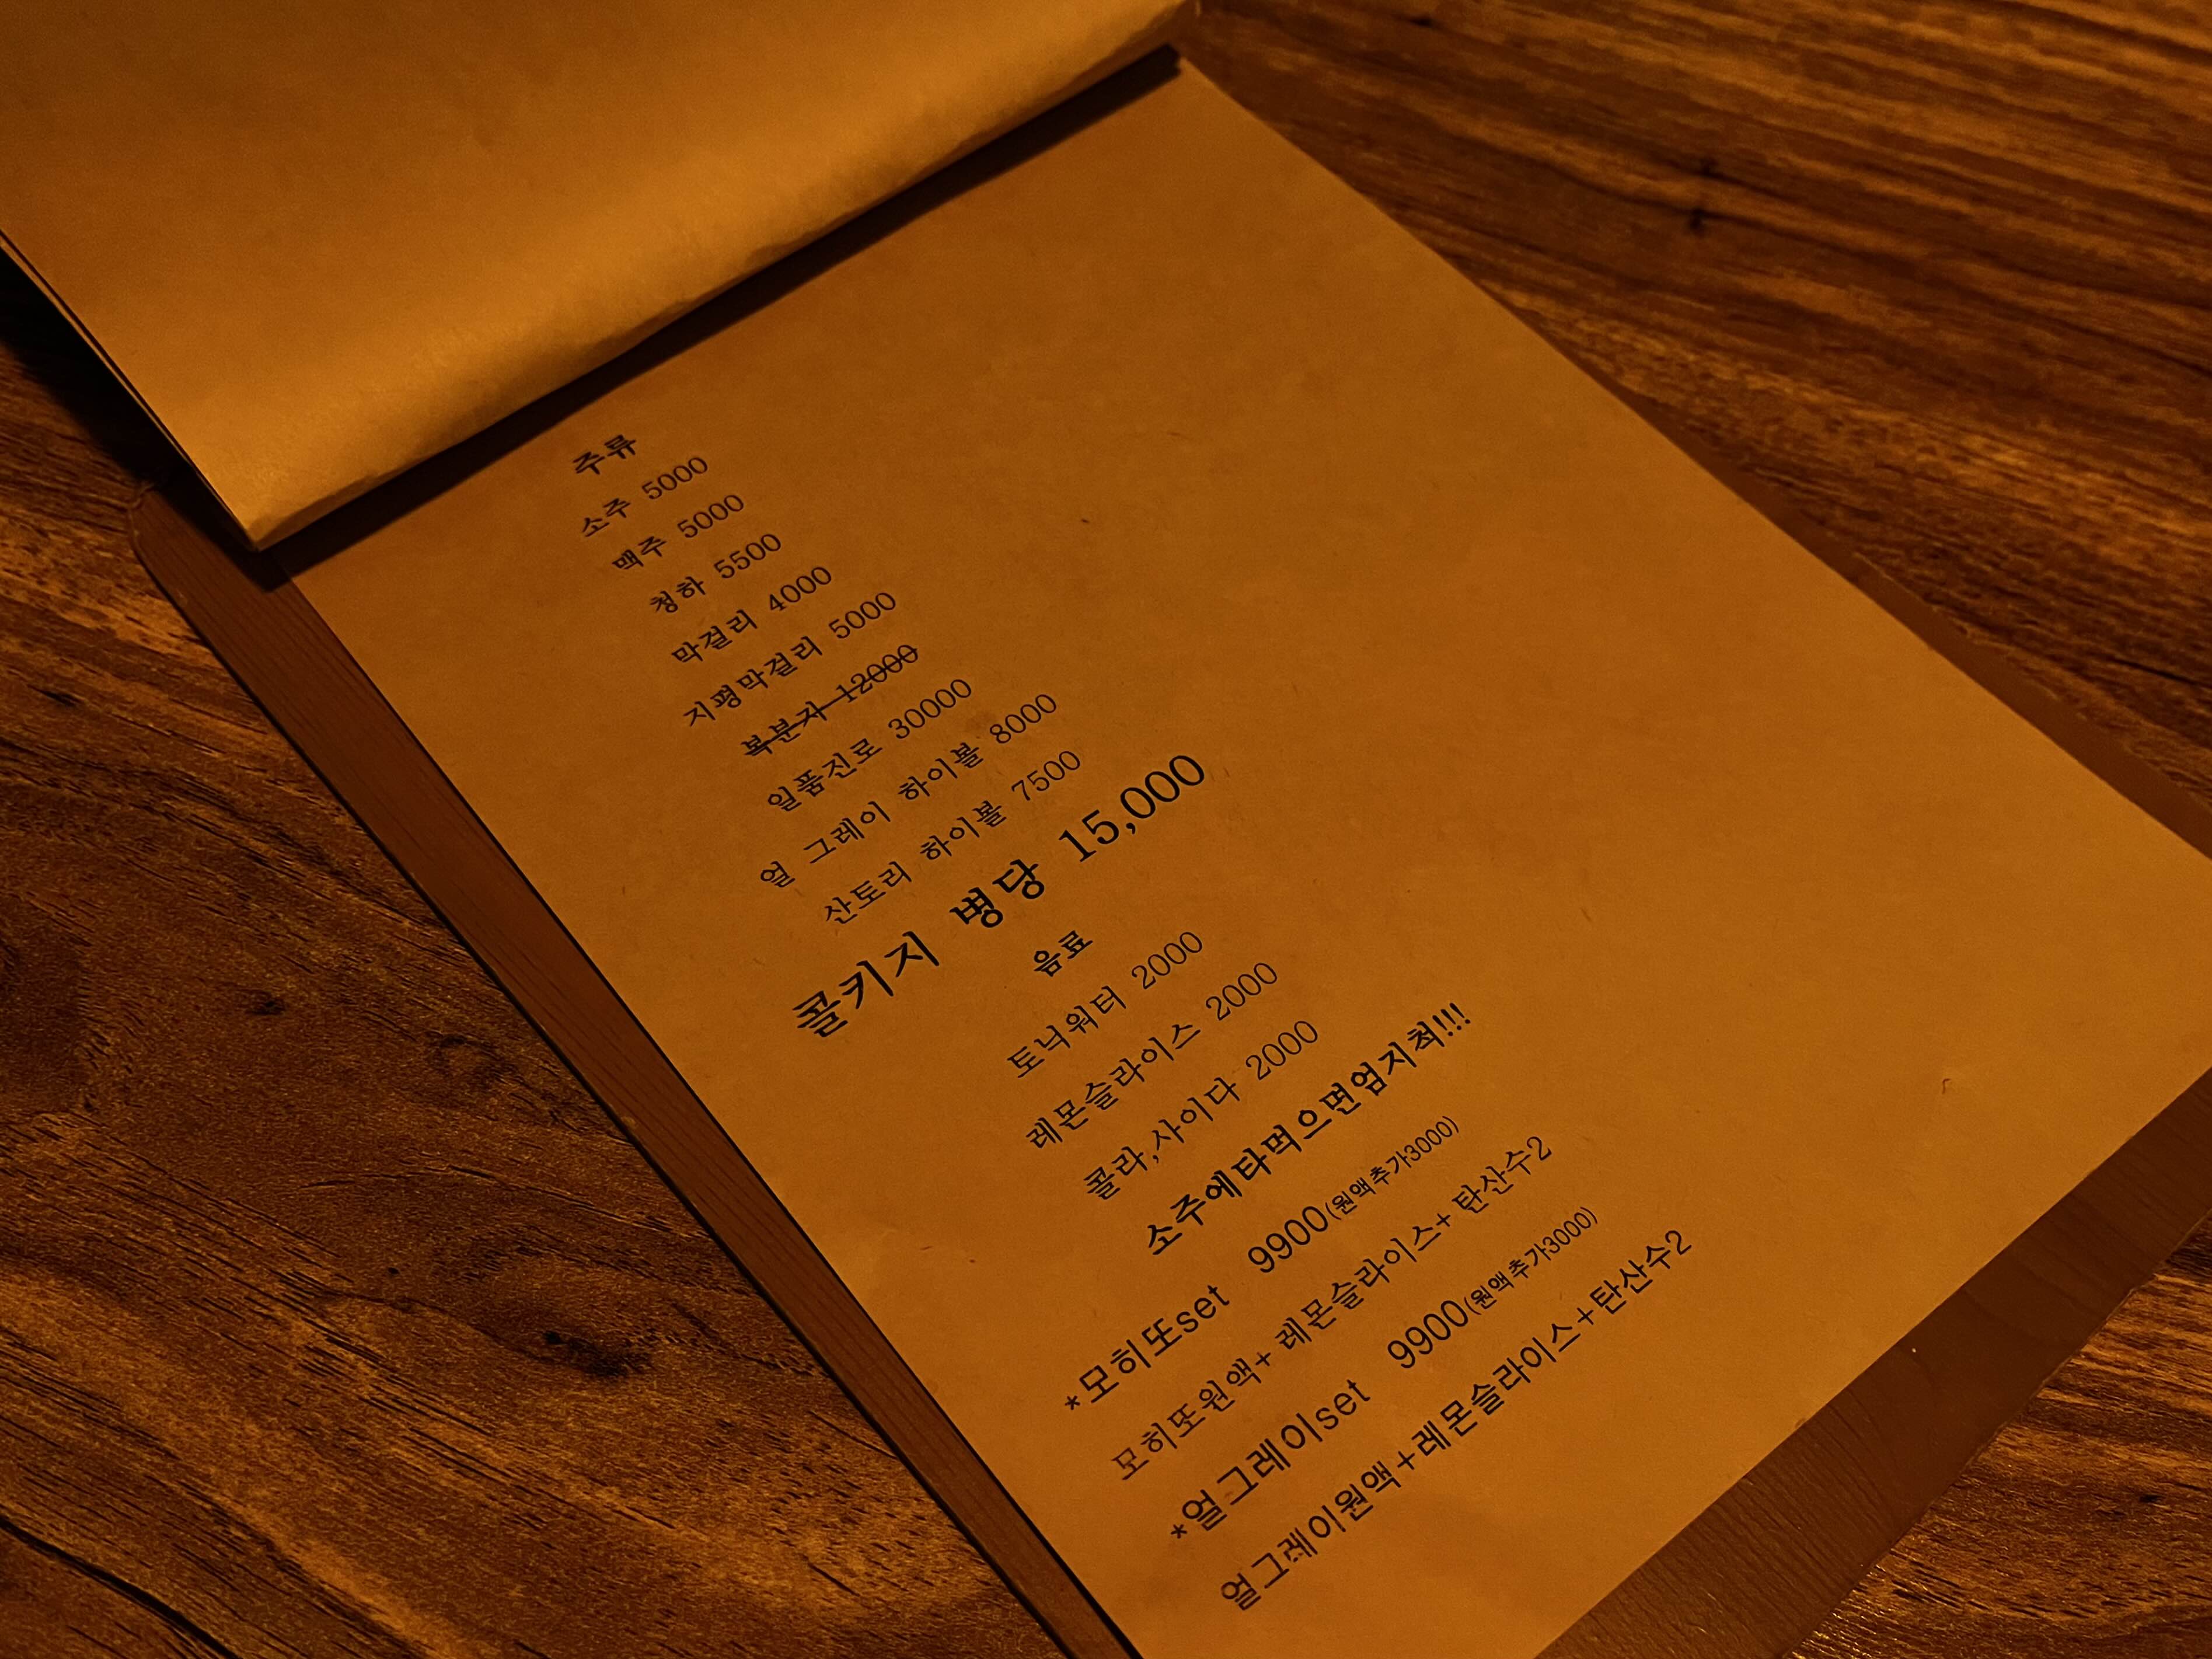 주류
소주 5000
맥주 5000
청하 5500
막걸리 4000
지평막걸리 5000
복분자 12000
일품진로 30000
얼 그레이 하이볼 8000
산토리 하이볼 7500
콜키지 병당 15,000
음료
토닉워터 2000
레몬슬라이스 2000
콜라,사이다 2000
소주에타먹으면엄지척!!!
*모히또set 9900(원액추가3000)
모히또원액+ 레몬슬라이스+ 탄산수2
*얼그레이set 9900(원액추가3000)
얼그레이원액+레몬슬라이스+탄산수2